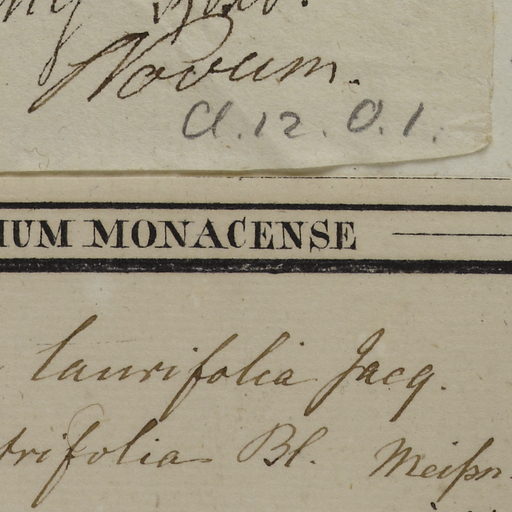 Novum.
Cl. 12. O. 1.
IUM MONACENSE
laurifolia Jacq.
trifolia Bl. Meißn.